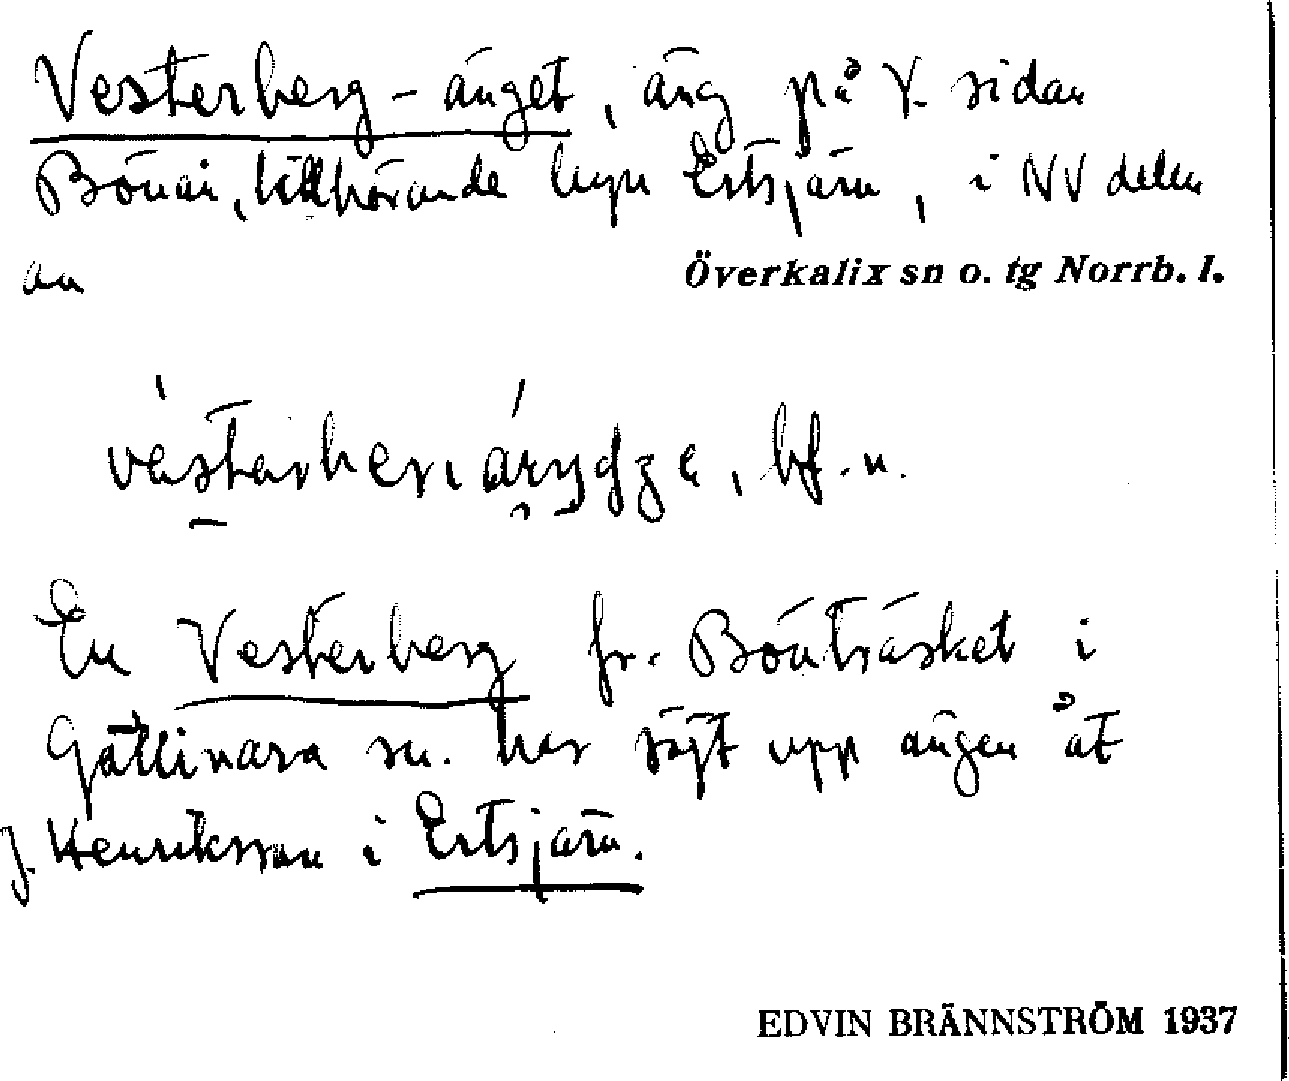 Vesterberg-änget, äng på V. sidan
Bönån, tillhörande byn Ertsjärv, i NV delen
av
Överkalix sn o. tg Norrb. l.
bf. n.
En Vesterberg fr. Bönträsket i
Gällivara sn. har röjt upp ängen åt
J. Henriksson i Ertsjärv.
EDVIN BRÄNNSTRÖM 1937